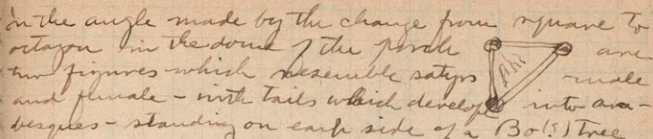 in the angle made by the change from square to
octagon in the dome of the porch are
two figures which resemble satyrs male
and female - with tails which develope into ara-
besques - standing on each side of a Bo (?) Tree